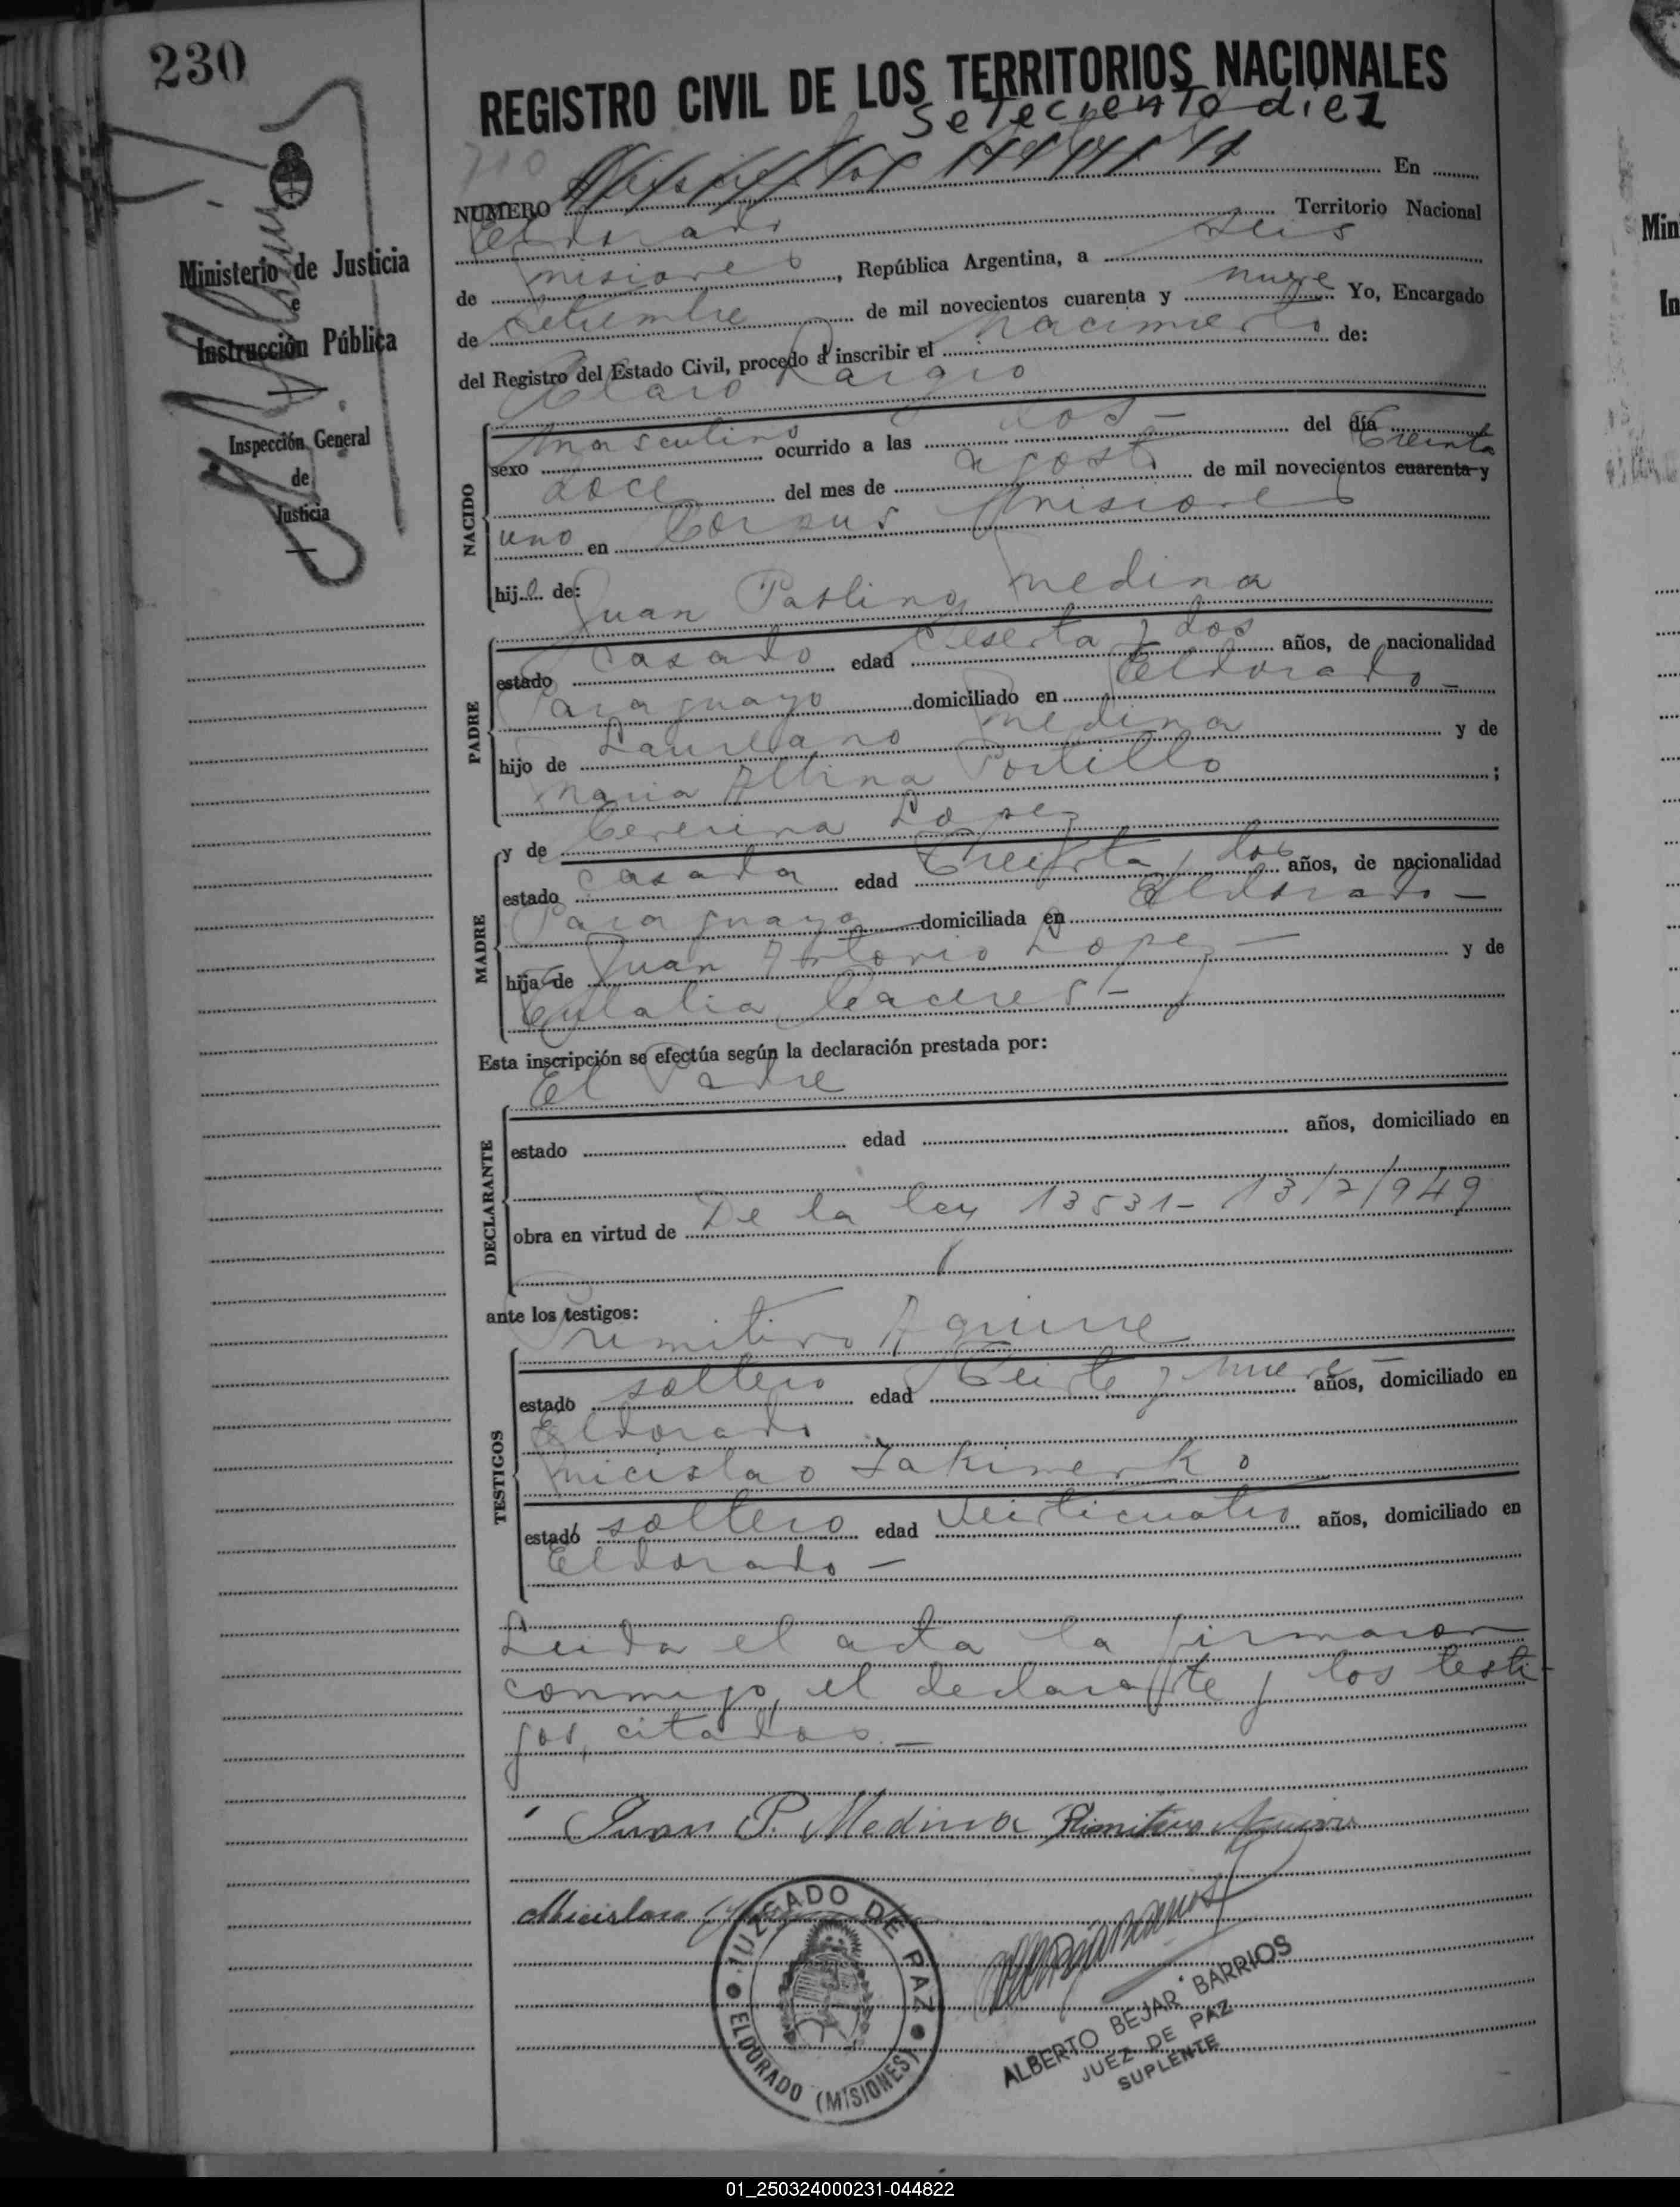 230
REGISTRO CIVIL DE LOS TERRITORIOS NACIONALES
Seteciento diez
710
NUMERO En
Eldorado Territorio Nacional
de misiones, República Argentina, a seis
de setiembre de mil novecientos cuarenta y nueve Yo, Encargado
del Registro del Estado Civil, procedo a inscribir el nacimiento de:
Claro
NACIDO
sexo masculino ocurrido a las dos - del día
doce del mes de agosto de mil novecientos cuarenta y treinta
uno en Corpus Misiones
hijo de: Juan Paslino Medina
PADRE
estado casado edad sesenta y dos años, de nacionalidad
Paraguayo domiciliado en Eldorado -
hijo de Laureano Medina y de
Maria Albina Portillo ;
y de Cererina Lopez
MADRE
estado casada edad treinta y dos años, de nacionalidad
Paraguaya domiciliada en Eldorado -
hija de Juan Antonio Lopez - y de
Eulalia Caceres -
Esta inscripción se efectúa según la declaración prestada por:
El Padre
DECLARANTE
estado edad años, domiciliado en
obra en virtud de De la ley 13531 - 13/7/949
ante los testigos:
Primitivo Aguirre
TESTIGOS
estado soltero edad y nueve - años, domiciliado en
Eldorado
Micislao Jakimenko
estado soltero edad veinticuatro años, domiciliado en
Eldorado -
Leida el acta la firmaron
conmigo, el declarante y los testi-
gos, citados. -
Juan P. Medina Primitivo Aguirre
Micislao
JUZGADO DE PAZ
ELDORADO (MISIONES)
ALBERTO BEJAR BARRIOS
JUEZ DE PAZ
SUPLENTE
Ministerio de Justicia
e
Instrucción Pública
Inspección General
de
Justicia
Min
In
01_250324000231-044822